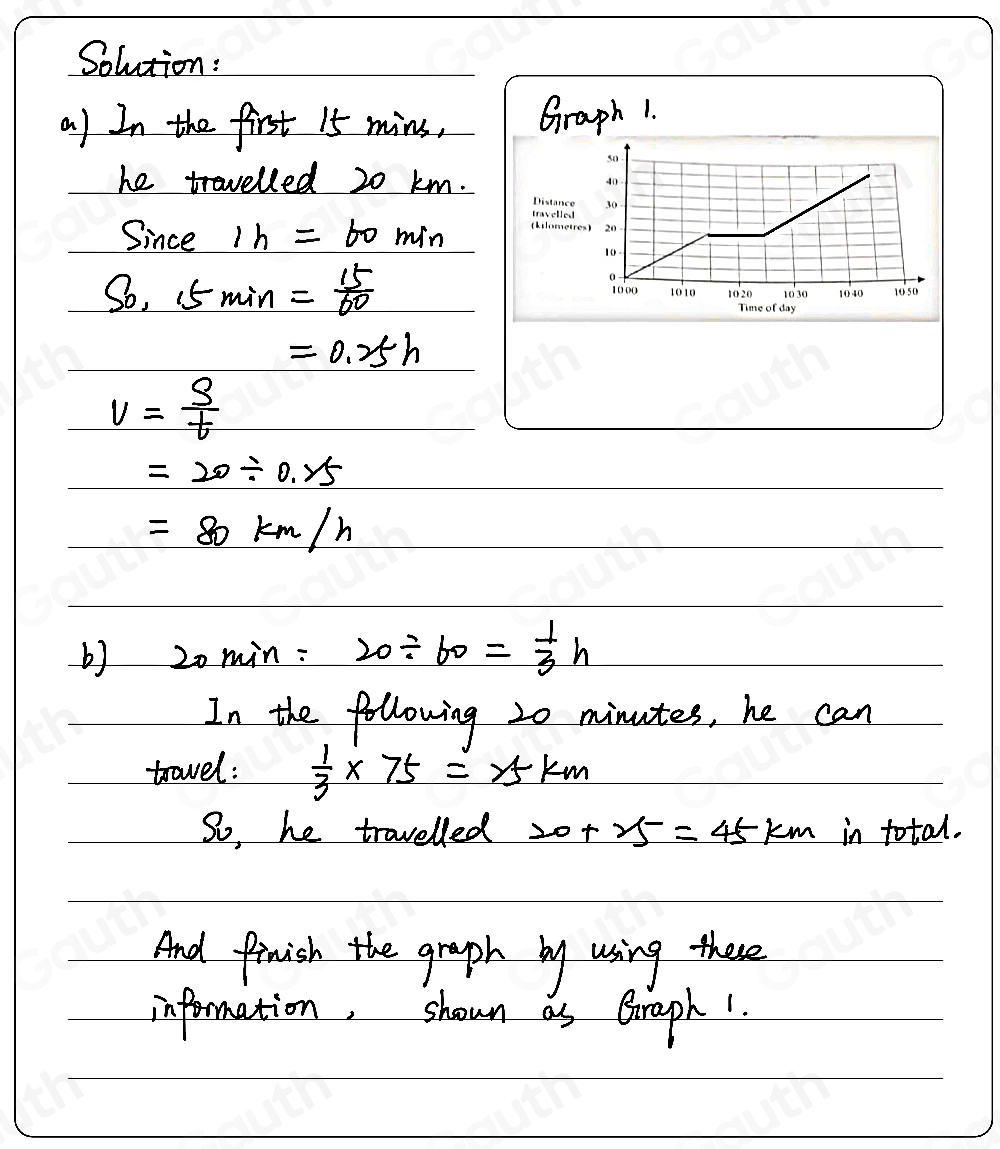 Solution:
a) In the first 15 mins,
he travelled 20 km.
Since 1 h = 60 min
So, 15 min = 15/60
= 0.25 h
V = S/t
= 20 ÷ 0.25
= 80 km/h
Graph 1.
50
40
30
20
10
0
Distance
travelled
(kilometres)
10 00 10 10 10 20 10 30 10 40 10 50
Time of day
b) 20 min = 20 ÷ 60 = 1/3 h
In the following 20 minutes, he can
travel: 1/3 × 75 = 25 km
So, he travelled 20 + 25 = 45 km in total.
And finish the graph by using these
information, shown as Graph 1.
Gauth